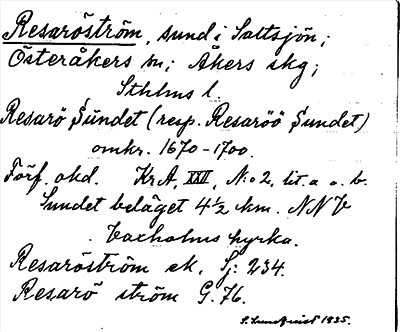 Resaröström, sund i Saltsjön;
Österåkers sn; Åkers skg;
Sthlms l.
Resarö Sundet (resp. Resaröö Sundet)
omkr. 1670-1700.
Förf. okd. Kr.A, XXII, N:o 2, lit. a o. b.
Sundet beläget 4 1/2 km. NNV
Vaxholms kyrka.
Resaröström ek. Sj: 234.
Resarö ström G. 76.
S. Lundqvist 1935.